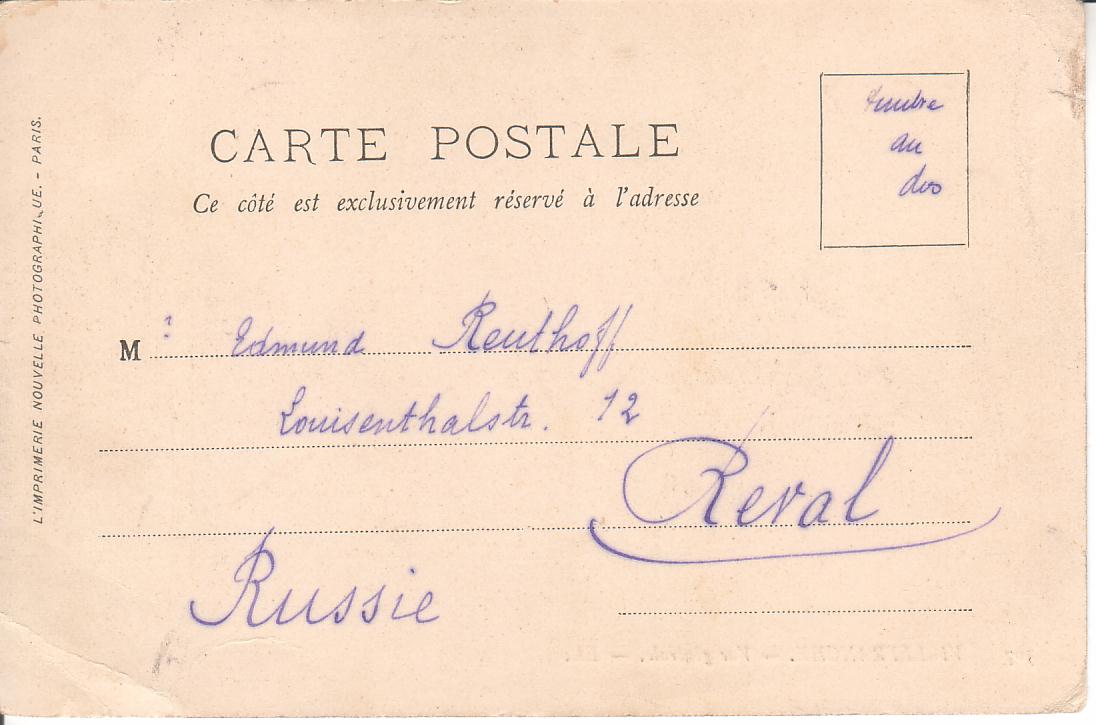 CARTE POSTALE
Ce côté est exclusivement réservé à l'adresse
timbre
au
dos
M r Edmund Reuthoff
Louisenthalstr. 12
Reval
Russie
L'IMPRIMERIE NOUVELLE PHOTOGRAPHIQUE. - PARIS.